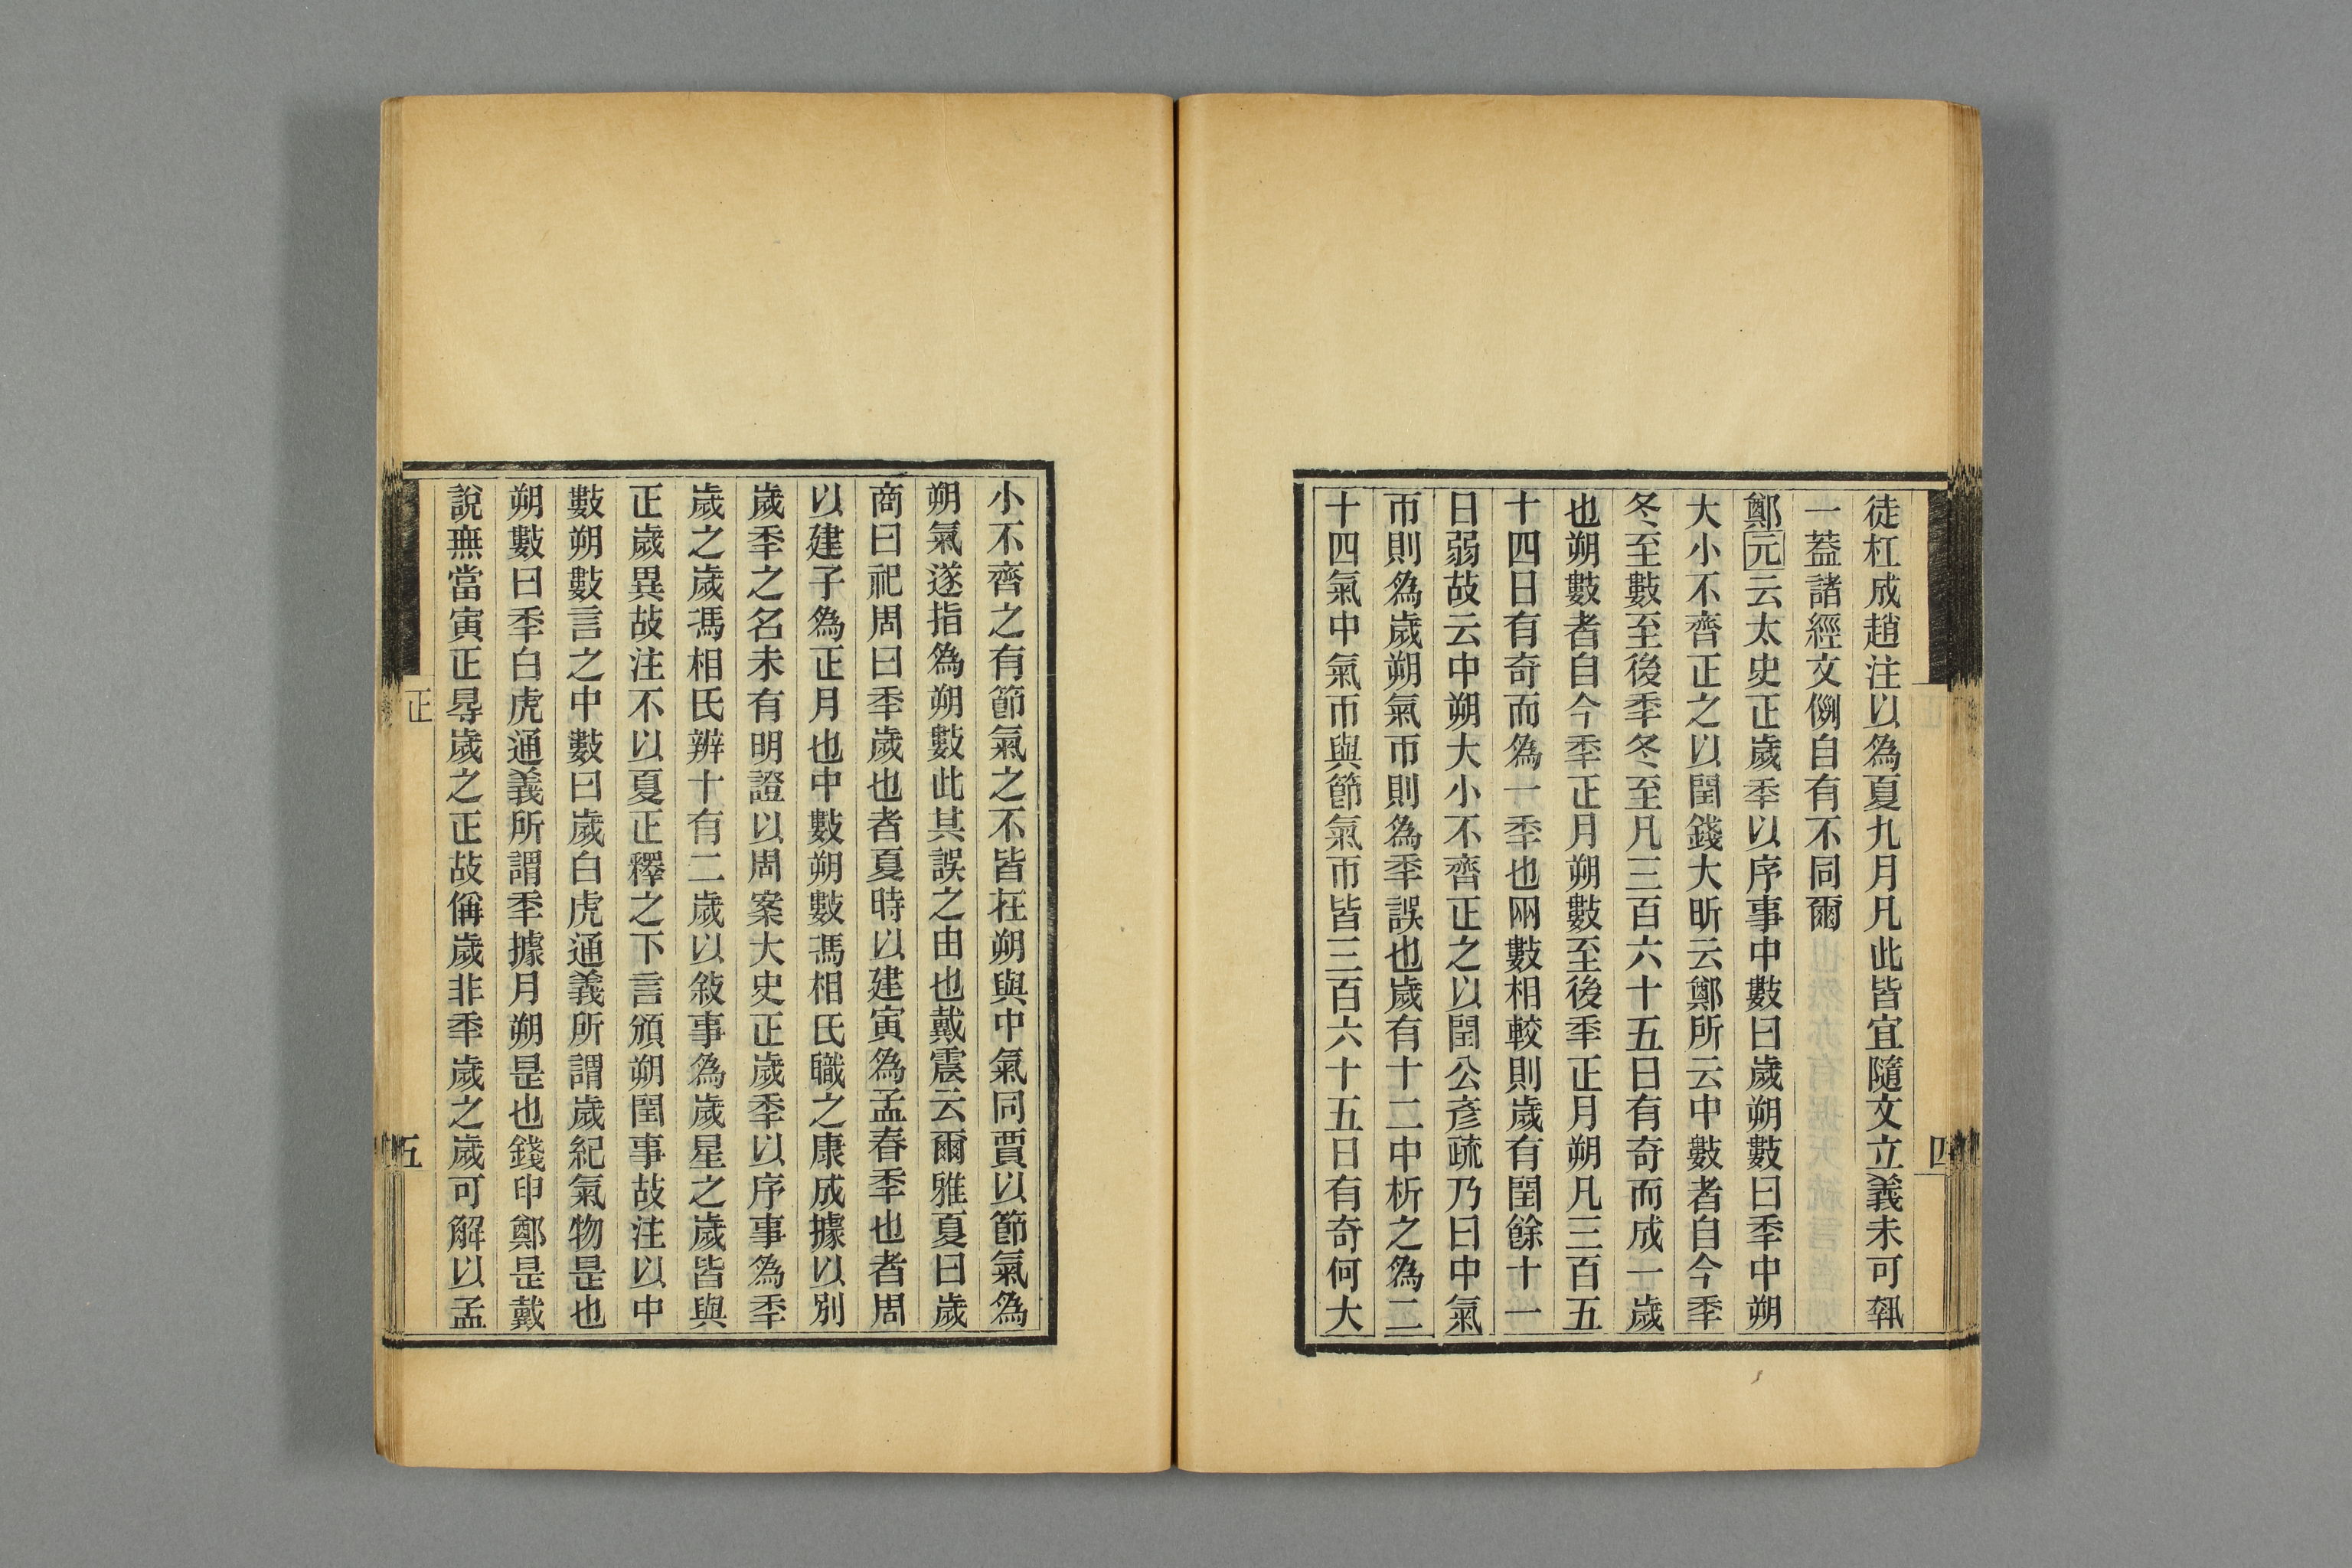 徒杠成趙注以為夏九月凡此皆宜隨文立義未可執
一葢諸經文例自有不同爾
鄭元云太史正歲秊以序事中數曰歲朔數曰秊中朔
大小不齊正之以閏錢大昕云鄭所云中數者自今秊
冬至數至後秊冬至凡三百六十五日有奇而成一歲
也朔數者自今秊正月朔數至後秊正月朔凡三百五
十四日有奇而為一秊也兩數相較則歲有閏餘十一
日弱故云中朔大小不齊正之以閏公彥疏乃曰中氣
帀則為歲朔氣帀則為秊誤也歲有十二中析之為二
十四氣中氣帀與節氣帀皆三百六十五日有奇何大
四
小不齊之有節氣之不皆在朔與中氣同賈以節氣為
朔氣遂指為朔數此其誤之由也戴震云爾雅夏曰歲
商曰祀周曰秊歲也者夏時以建寅為孟春秊也者周
以建子為正月也中數朔數馮相氏職之康成據以別
歲秊之名未有明證以周案大史正歲秊以序事為秊
歲之歲馮相氏辨十有二歲以敘事為歲星之歲皆與
正歲異故注不以夏正釋之下言頒朔閏事故注以中
數朔數言之中數曰歲白虎通義所謂歲紀氣物是也
朔數曰秊白虎通義所謂秊據月朔是也錢申鄭是戴
說無當寅正㝵歲之正故偁歲非秊歲之歲可解以孟
正
五